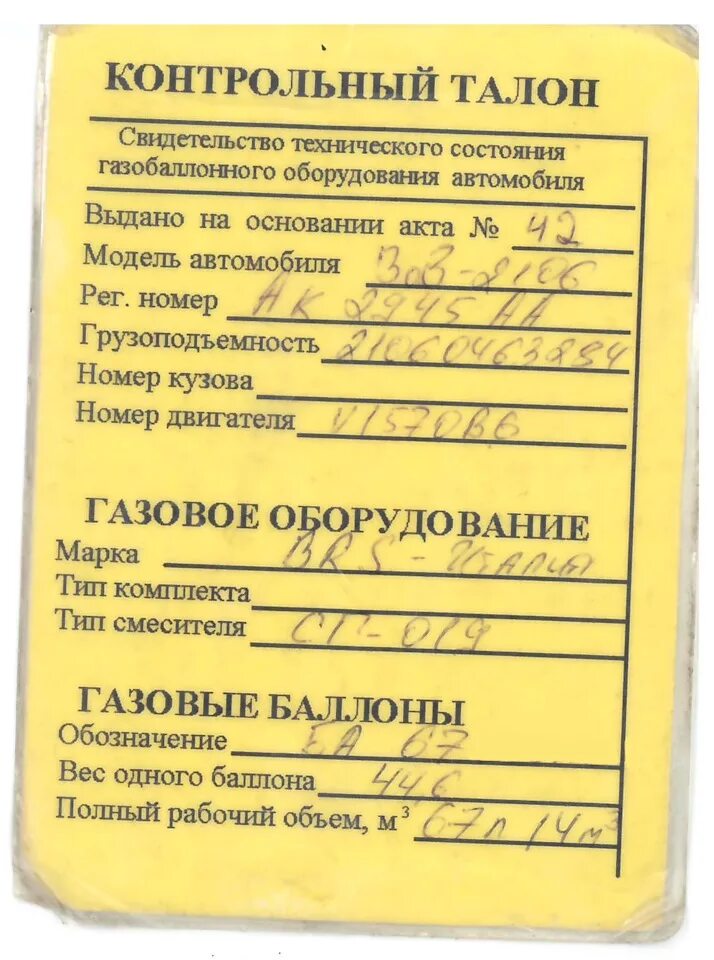 КОНТРОЛЬНЫЙ ТАЛОН
Свидетельство технического состояния
газобаллонного оборудования автомобиля
Выдано на основании акта № 42
Модель автомобиля ВАЗ-2106
Рег. номер АК 2945 АА
Грузоподъемность 21060463284
Номер кузова
Номер двигателя
ГАЗОВОЕ ОБОРУДОВАНИЕ
Марка - Италия
Тип комплекта
Тип смесителя СГ-019
ГАЗОВЫЕ БАЛЛОНЫ
Обозначение БА 67
Вес одного баллона
Полный рабочий объем, м³ 67л 14м³